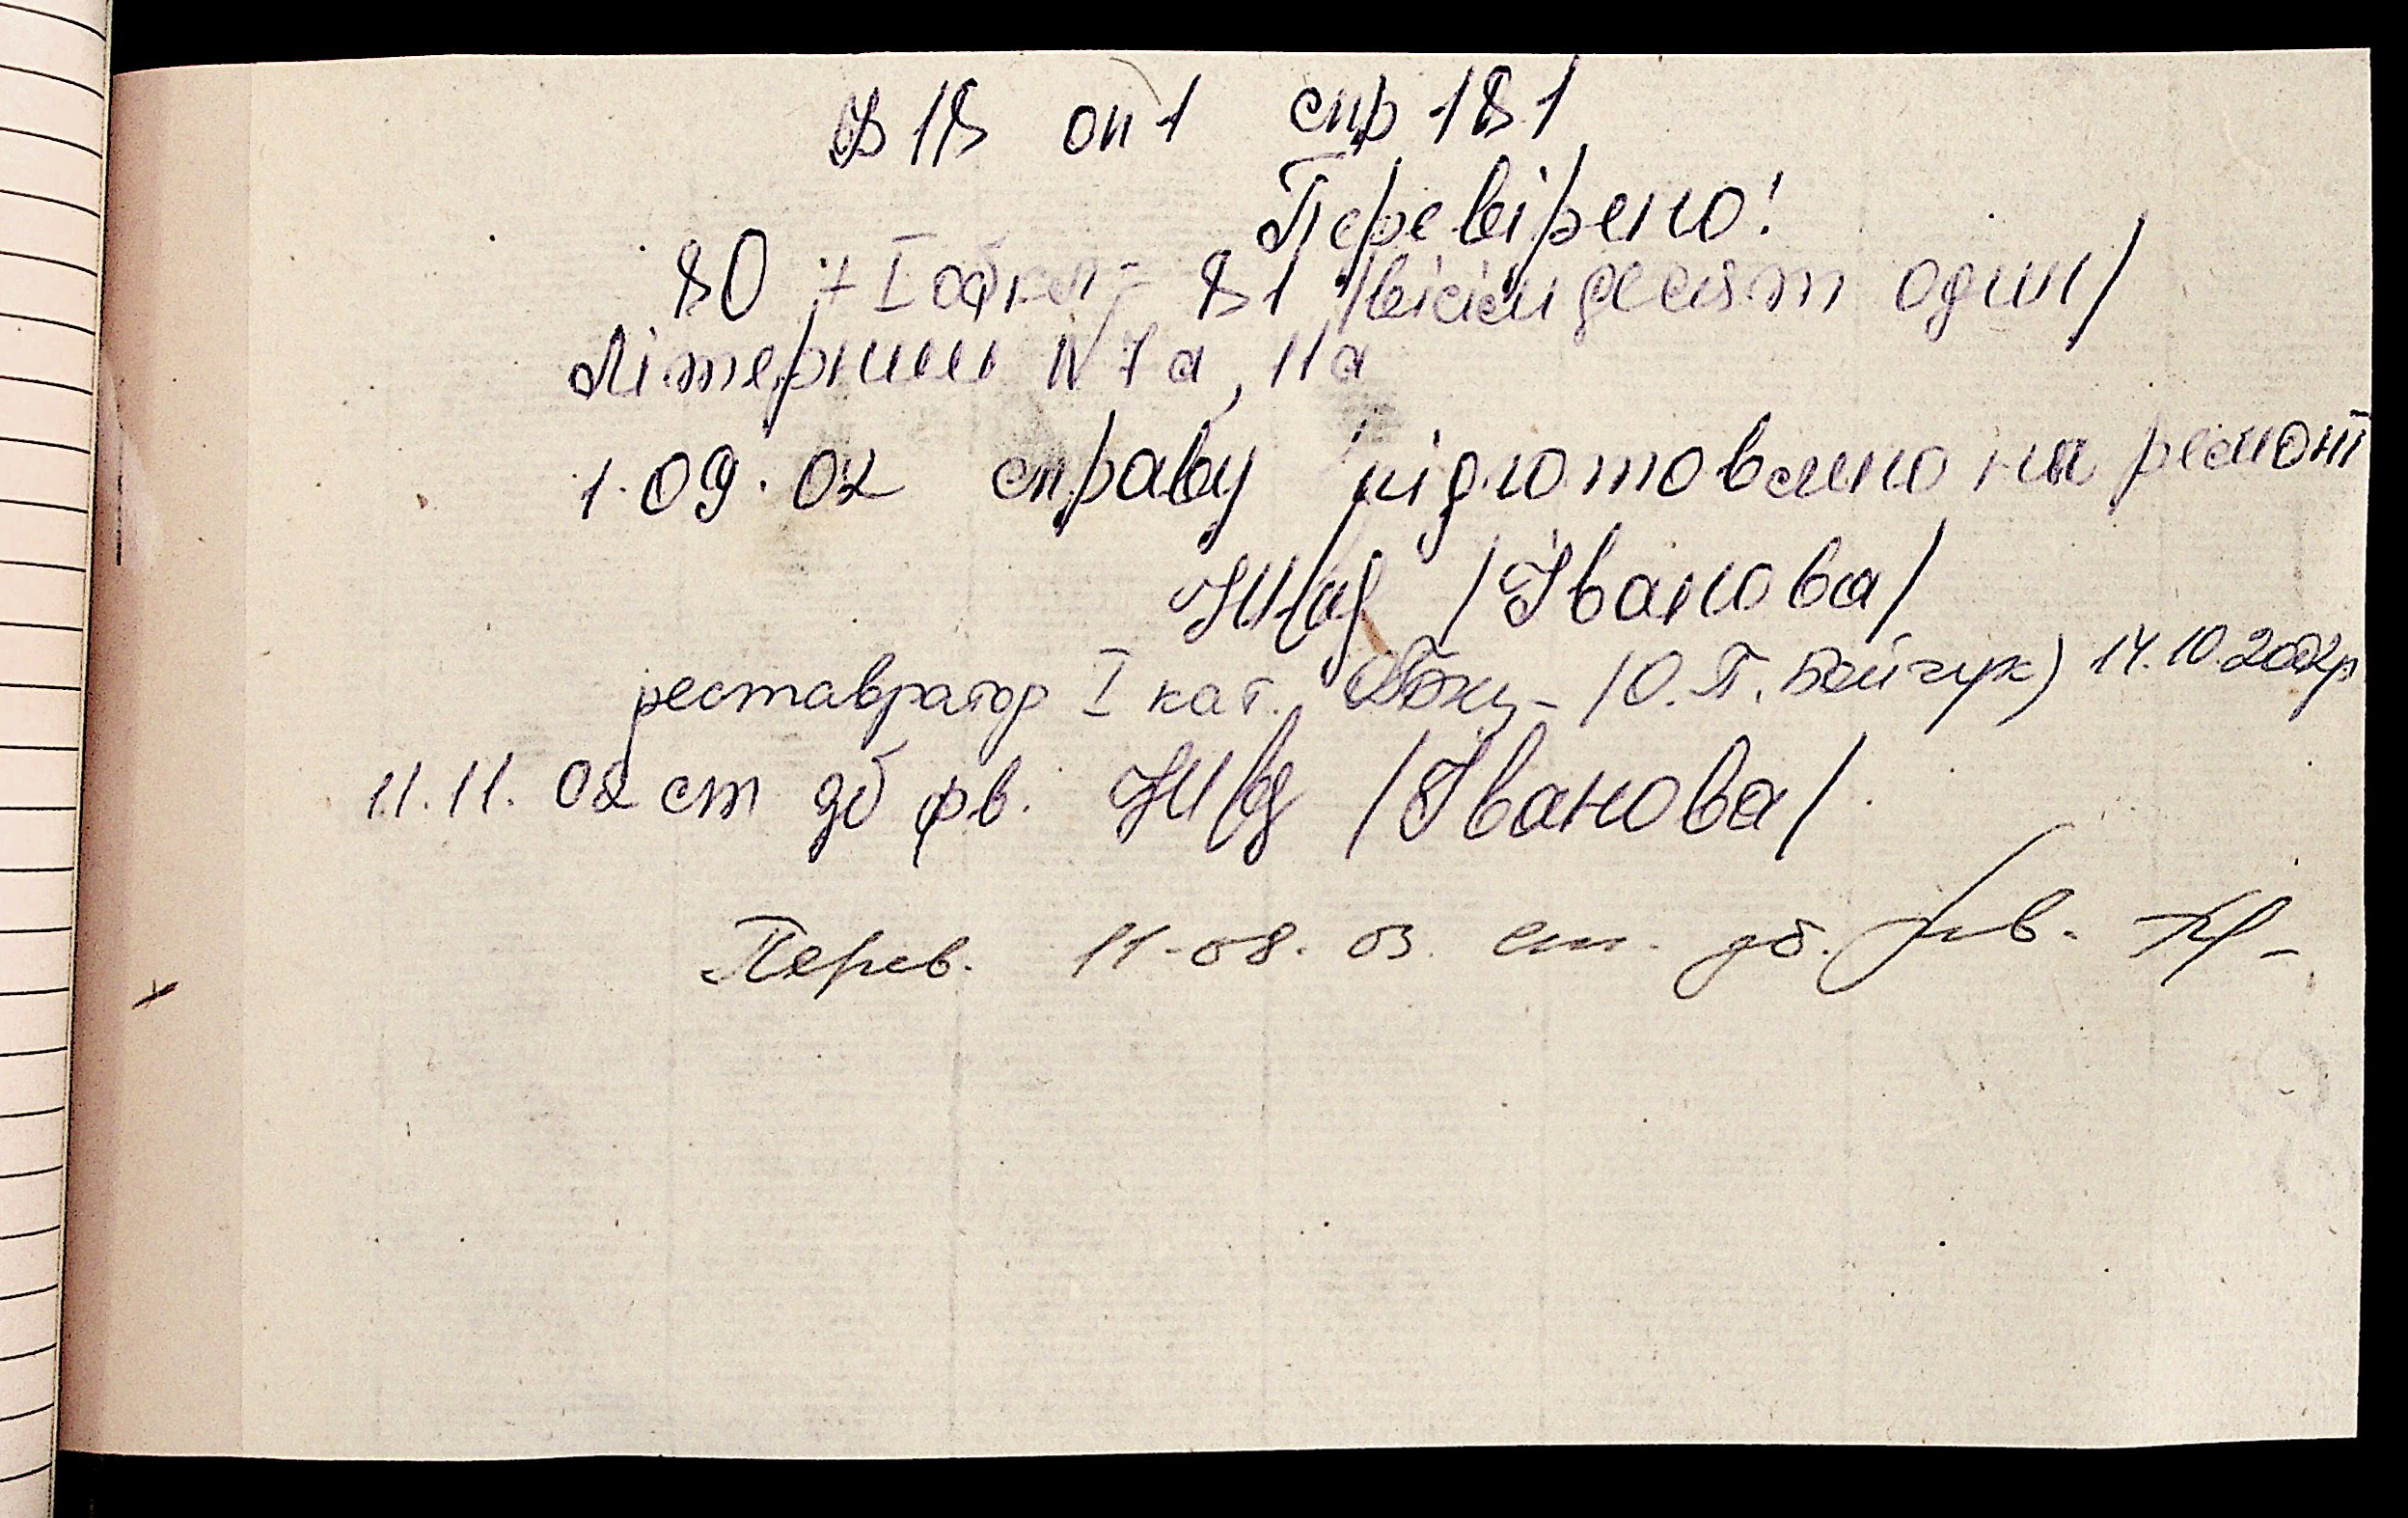 ф 18 оп 1 спр 181
Перевірено!
80 + I обкл = 81 /вісімдесят один/
Літерними N 7а, 11а
1.09.02 справу підготовлено на ремонт
/Іванова/
реставратор I кат. (О.П. Бойчук) 14.10.2002р
11.11.02 ст дб фв. /Іванова/.
Перев. 11-08.03. ст. дб.